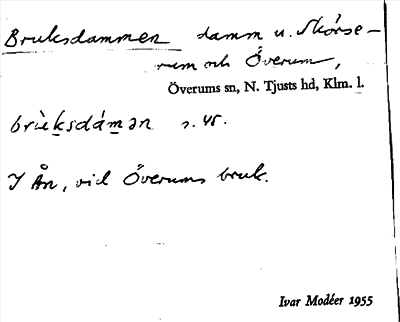 Bruksdammen damm u. Skörse-
rum och Överum,
Överums sn, N. Tjusts hd, Klm. l.
brùksdámən s. 45.
I ån, vid Överums bruk.
Ivar Modéer 1955